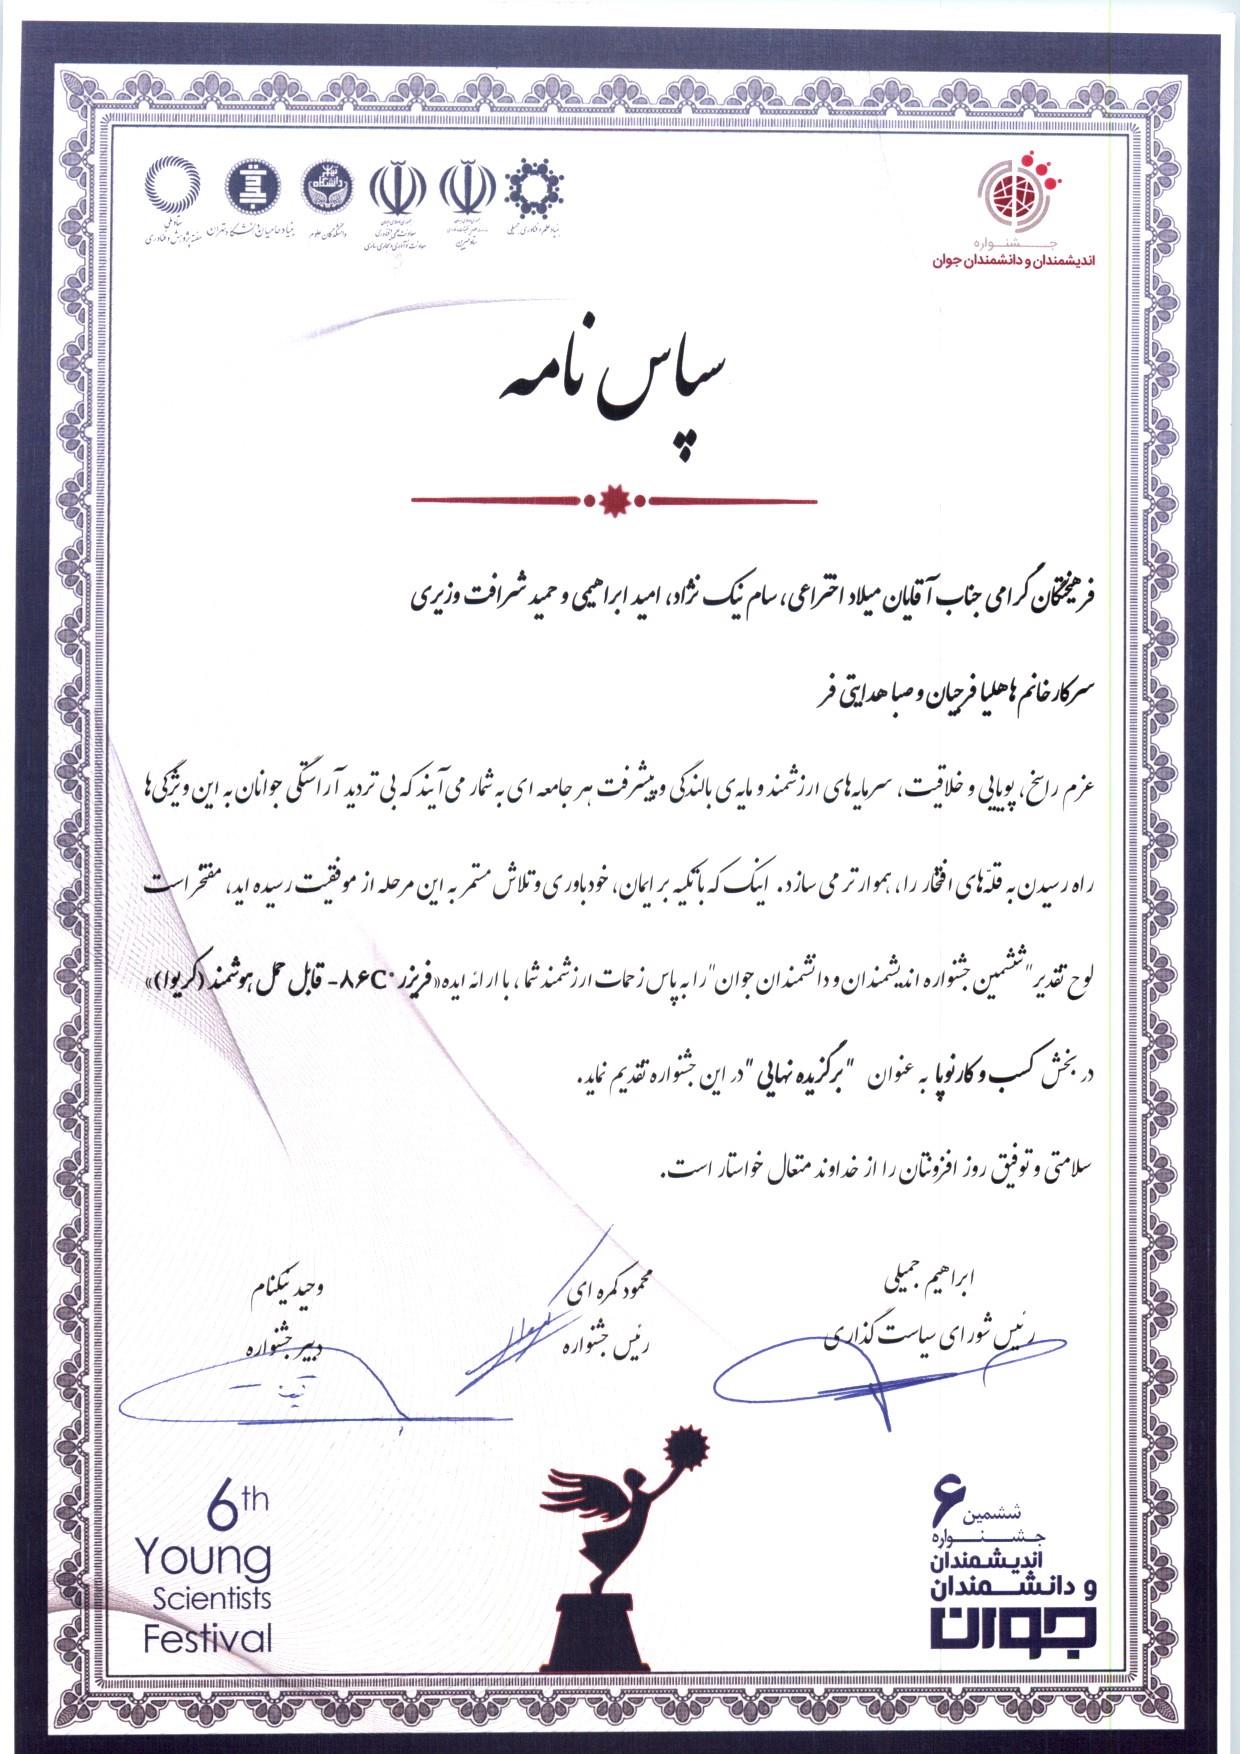 جشنواره
اندیشمندان و دانشمندان جوان
بنیاد علم و فناوری جمیلی
دانشکدگان علوم
بنیاد حامیان دانشگاه تهران
ستاد ملی
هفته پژوهش و فناوری
سپاس نامه
فرهیختگان گرامی جناب آقایان میلاد اختراعی، سام نیک نژاد، امید ابراهیمی و حمید شرافت وزیری
سرکار خانم ها هلیا فرجیان و صبا هدایتی فر
عزم راسخ، پویایی و خلاقیت، سرمایه های ارزشمند و مایه ی بالندگی و پیشرفت هر جامعه ای به شمار می آیند که بی تردید آراستگی جوانان به این ویژگی ها
راه رسیدن به قلّه های افتخار را، هموارتر می سازد. اینک که با تکیه بر ایمان، خودباوری و تلاش مستمر به این مرحله از موفقیت رسیده اید، مفتخر است
لوح تقدیر "ششمین جشنواره اندیشمندان و دانشمندان جوان" را به پاس زحمات ارزشمند شما، با ارائه ایده «فریزر ۸۶C°- قابل حمل هوشمند (کریوا)»
در بخش کسب و کار نوپا به عنوان "برگزیده نهایی" در این جشنواره تقدیم نماید.
سلامتی و توفیق روز افزونتان را از خداوند متعال خواستار است.
ابراهیم جمیلی
رئیس شورای سیاست گذاری
محمود کمره ای
رئیس جشنواره
وحید نیکنام
دبیر جشنواره
6th
Young
Scientists
Festival
۶
ششمین
جشنواره
اندیشمندان
و دانشمندان
جوان